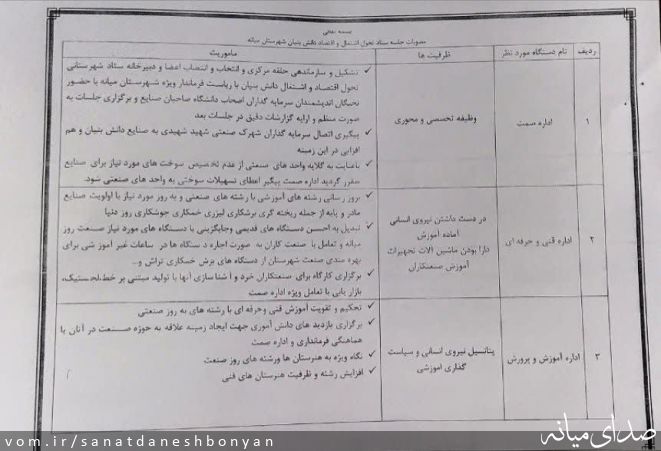 بسمه تعالی
مصوبات جلسه ستاد تحول اشتغال و اقتصاد دانش بنیان شهرستان میانه
ردیف
نام دستگاه مورد نظر
ظرفیت ها
ماموریت
۱
اداره صمت
وظیفه تخصصی و محوری
✓ تشکیل و سازماندهی حلقه مرکزی و انتخاب و انتصاب اعضا و دبیرخانه ستاد شهرستانی
تحول اقتصاد و اشتغال دانش بنیان با ریاست فرماندار ویژه شهرستان میانه با حضور
نخبگان اندیشمندان سرمایه گذاران اصحاب دانشگاه صاحبان صنایع و برگزاری جلسات به
صورت منظم و ارایه گزارشات دقیق در جلسات بعد
✓ پیگیری اتصال سرمایه گذاران شهرک صنعتی شهید شهیدی به صنایع دانش بنیان و هم
افزایی در این زمینه
✓ باعنایت به گلایه واحد های صنعتی از عدم تخصیص سوخت های مورد نیاز برای صنایع
مقرر گردید اداره صمت پیگیر اعطای تسهیلات سوختی به واحد های صنعتی شود.
۲
اداره فنی و حرفه ای
در دست داشتن نیروی انسانی
آماده آموزش
دارا بودن ماشین آلات تجهیزات
آموزش صنعتکاران
✓ بروز رسانی رشته های آموزشی با رشته های صنعتی و به روز مورد نیاز با اولویت صنایع
مادر و پایه از جمله ریخته گری برشکاری لیزری خمکاری جوشکاری روز دنیا
✓ تبدیل به احسن دستگاه های قدیمی وجایگزینی با دستگاه های مورد نیاز صنعت روز
میانه و تعامل با صنعت کاران به صورت اجاره دستگاه ها در ساعات غیر آموزشی برای
بهره مندی صنعت شهرستان از دستگاه های برش خمکاری تراش و..
✓ برگزاری کارگاه برای صنعتکاران خرد و آشناسازی آنها با تولید مبتنی بر خط،لجستیک،
بازار یابی با تعامل ویژه اداره صمت
۳
اداره آموزش و پرورش
پتانسیل نیروی انسانی و سیاست
گذاری آموزشی
✓ تحکیم و تقویت آموزش فنی و حرفه ای با رشته های به روز صنعتی
✓ برگزاری بازدید های دانش آموزی جهت ایجاد زمینه علاقه به حوزه صنعت در آنان با
هماهنگی فرمانداری و اداره صمت
✓ نگاه ویژه به هنرستان ها ورشته های روز صنعت
✓ افزایش رشته و ظرفیت هنرستان های فنی
vom.ir/sanatdaneshbonyan
صدای میانه